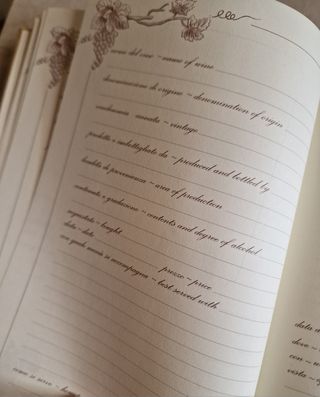 nome del vino – name of wine
denominazione di origine – denomination of origin
vendemmia annata – vintage
prodotto e imbottigliato da – produced and bottled by
località di provenienza – area of production
contenuto e gradazione – contents and degree of alcohol
acquistato – bought
prezzo – price
data – date
con quale menù si accompagna – best served with
data
dove –
con –
vista –
come si serve –